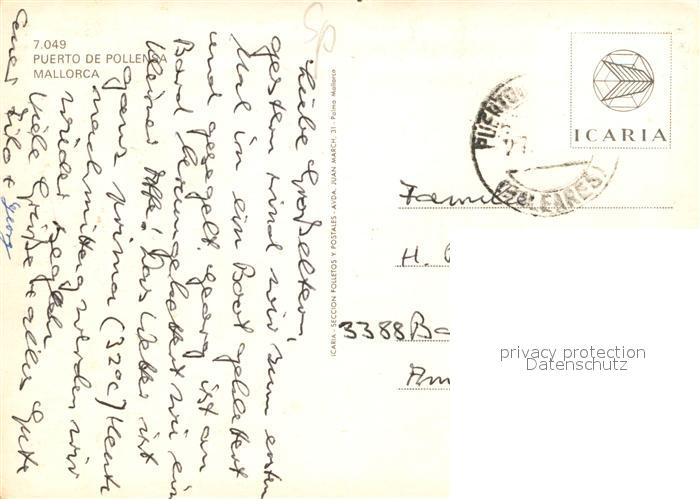 7.049
PUERTO DE POLLENSA
MALLORCA
Liebe Großeltern,
gestern sind wir zum ersten
Mal in ein Boot geklettert
und gesegelt. Georg ist an
Bord herumgeklettert wie ein
kleiner Affe! Das Wetter ist
ganz prima (32°C) Heute
nachmittag werden wir
wieder segeln.
Viele Grüße + alles Gute
Eure Silke + Georg
ICARIA - SECCION FOLLETOS Y POSTALES - AVDA. JUAN MARCH, 31 - Palma Mallorca
ICARIA
PUERTO
(BALEARES)
Familie
H.
3388 Ba
Am
privacy protection
Datenschutz